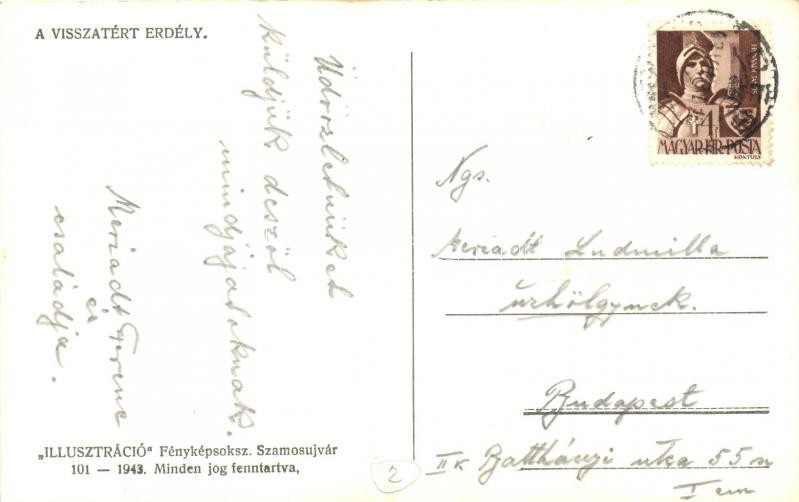 A VISSZATÉRT ERDÉLY.
Üdvözletünket
küldjük deszöl
mindjájatoknak.
Meriadt Ferenc
és
családja.
„ILLUSZTRÁCIÓ“ Fényképsoksz. Szamosujvár
101 — 1943. Minden jog fenntartva,
2
HUNYADI JÁNOS
4f
MAGYAR·KIR·POSTA
KONTULY
Ngs.
Meriadt Ludmilla
urhölgynek.
Budapest
II k Batthányi utca 55
I em